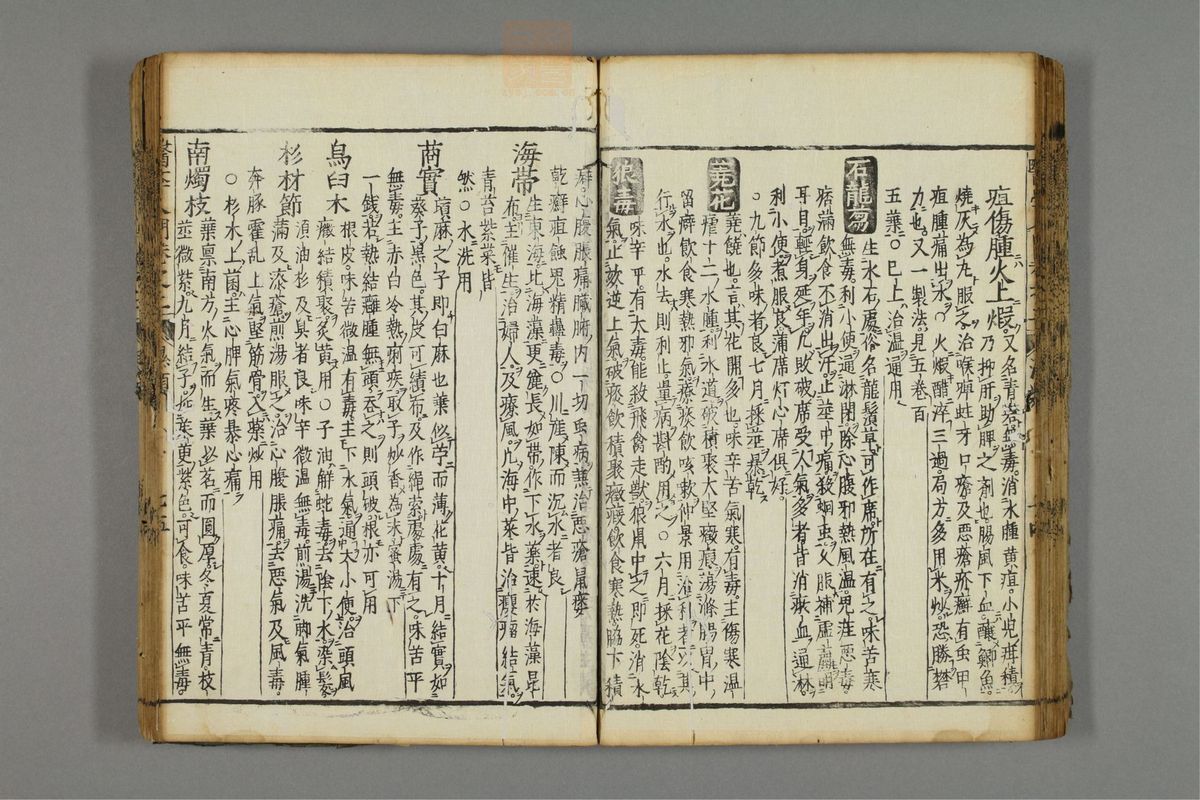 疽傷腫火上瘕又名青蒙無毒消水腫黄疸小児疳積
乃抑肝助脾之剤也腸風下血醸鯽魚
燒灰為丸服之治喉痹蛀牙口瘡及惡瘡疥癬有虫甲
疽腫痛出水○火煅醋淬三過局方多用米炒恐勝礬
力也又一製法見五卷百
五葉○已上治温通用
石龍芻
生水石處俗名龍鬚草可作席所在有之味苦寒
無毒利小便通淋閉除心腹邪熱風温鬼疰惡毒
痞滿飲食不消出汗止莖中痛殺蛔虫又脹補虛聰明
耳目輕身延年凡敗破席受人氣多者皆消瘀血通淋
利小便煮服良蒲席灯心席俱好
○九節多味者良七月採莖暴乾
蕘花
蕘饒也言其花開多也味辛苦氣寒有毒主傷寒温
瘧十二水腫利水道破積聚大堅癥瘕蕩滌腸胃中
留癖飲食寒熱邪氣療痰飲咳嗽仲景用治利者以其
行水也水去則利止量病斟酌用之○六月採花陰乾
狼毒
味辛平有大毒能殺飛禽走獣狼鼠中之則死消水
氣止欬逆上氣破痰飲積聚癥瘕飲食寒熱脇下積
癖心腹脹痛臟腑内一切虫病兼治惡瘡鼠瘻
乾癬疽蝕鬼精蠱毒○川産陳而沉水者良
海帶
生東海比海藻更麄長如帶作下水藥速於海藻昆
布主催生治婦人及療風凡海中菜皆治癭瘤結氣
青苔紫菜皆
然○水洗用
苘實
䔛麻之子即白麻也葉似苧而薄花黄十月結實如
葵子黒色其皮可績布及作繩索處處有之味苦平
無毒主赤白冷熱痢疾取子炒香為末蜜湯下
一錢若熱結癰腫無頭吞之則頭破根亦可用
烏臼木
根皮味苦微温有毒主下水氣通大小便治頭風
癥結積聚炙黄用○子油解蛇毒去陰下水染髮
杉材節
須油杉及臭者良味辛微温無毒煎湯洗脚氣腫
滿及漆瘡煎湯服之治心腹脹痛去惡氣及風毒
奔豚霍乱上氣堅筋骨入藥炒用
○杉木上菌主心脾氣疼暴心痛
南燭枝
葉禀南方火氣而生葉似茗而圓厚冬夏常青枝
莖微紫九月結子成𦸼黄紫色可食味苦平無毒